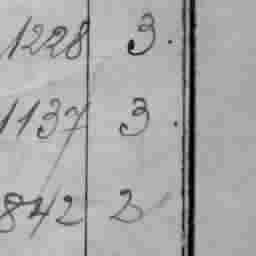 1228 3.
1137 3.
842 2